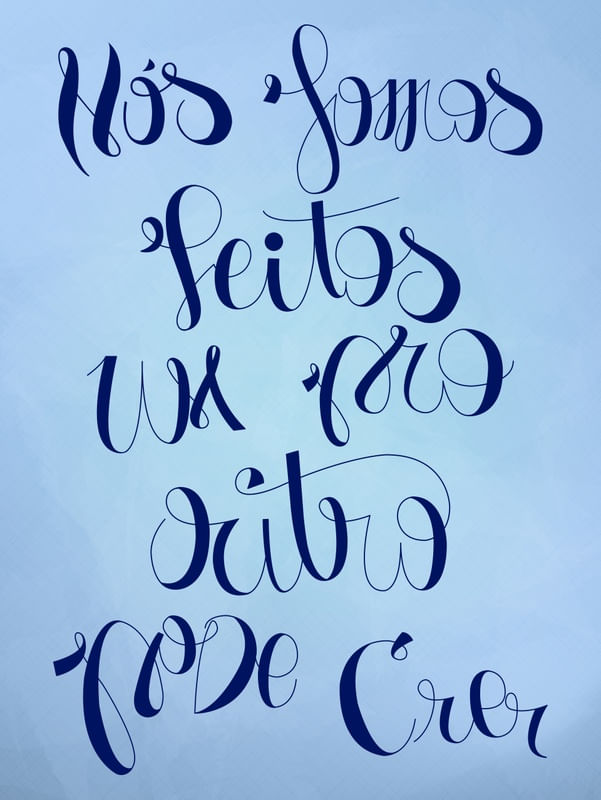 Nós somos
feitos
um pro
outro
pode crer